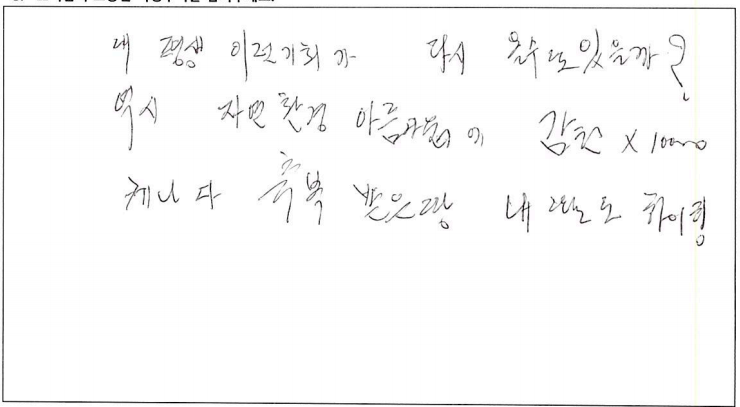 내 평생 이런기회가 다시 올수도있을까?
역시 자연환경 아름다움에 감탄 X 10000
캐나다 축복 받은땅 내 도 화이팅